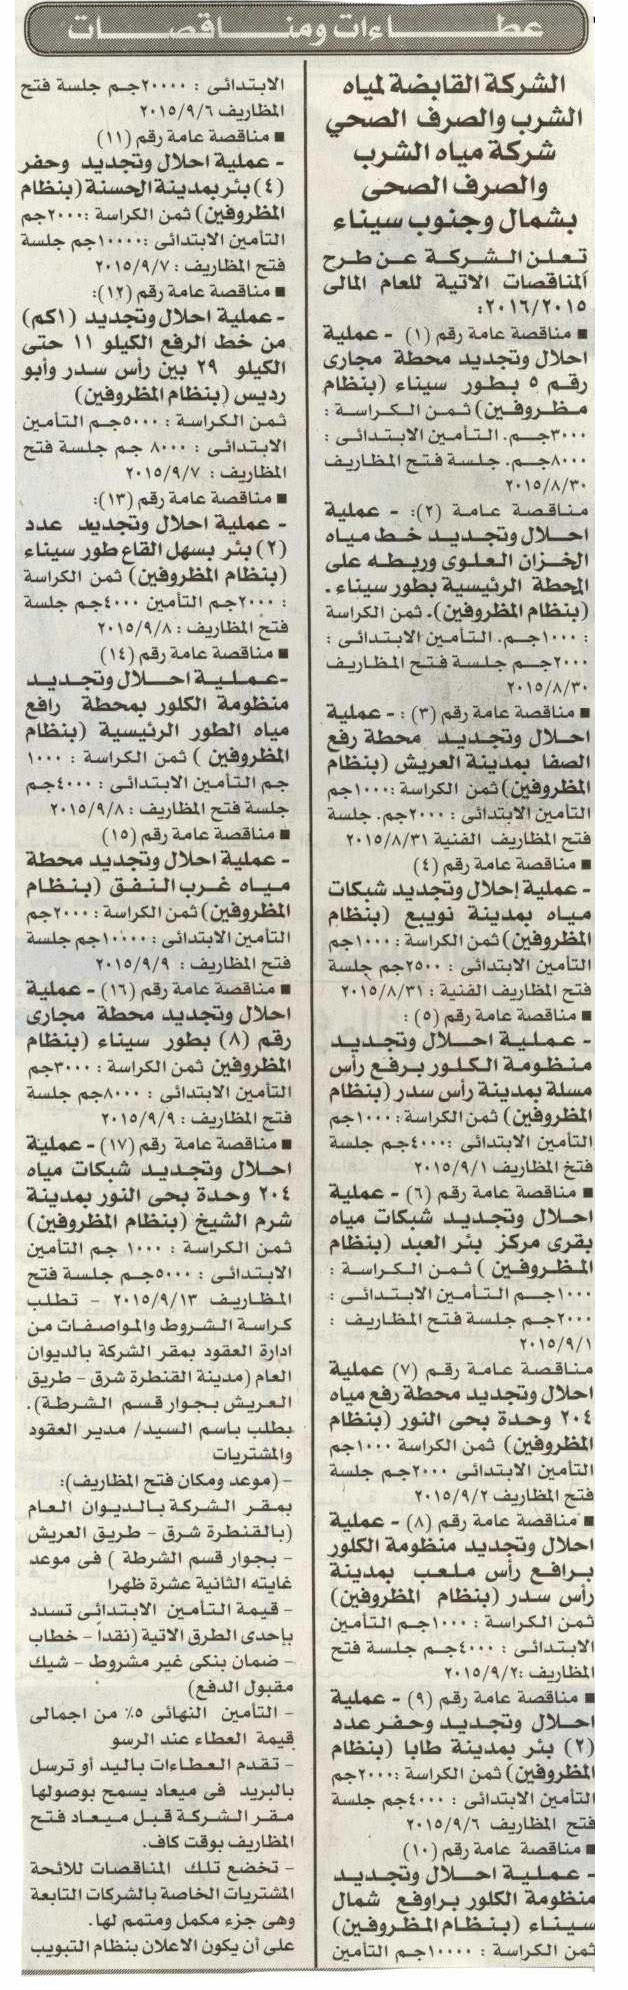 عطاءات ومناقصات
الشركة القابضة لمياه
الشرب والصرف الصحي
شركة مياه الشرب
والصرف الصحى
بشمال وجنوب سيناء
تعلن الشركة عن طرح
المناقصات الاتية للعام المالى
٢٠١٦/٢٠١٥:
■ مناقصة عامة رقم (١) - عملية
احلال وتجديد محطة مجارى
رقم ٥ بطور سيناء (بنظام
مظروفين) ثمن الكراسة :
٣٠٠٠جم. التأمين الابتدائى :
٨٠٠٠جم. جلسة فتح المظاريف
٢٠١٥/٨/٣٠
مناقصة عامة (٢): - عملية
احلال وتجديد خط مياه
الخزان العلوى وربطه على
المحطة الرئيسية بطور سيناء.
(بنظام المظروفين). ثمن الكراسة
: ١٠٠٠جم. التأمين الابتدائى :
٢٠٠٠جم جلسة فتح المظاريف
٢٠١٥/٨/٣٠
■ مناقصة عامة رقم (٣) : - عملية
احلال وتجديد محطة رفع
الصفا بمدينة العريش (بنظام
المظروفين) ثمن الكراسة: ١٠٠٠جم
التأمين الابتدائى : ٢٠٠٠جم. جلسة
فتح المظاريف الفنية ٢٠١٥/٨/٣١
■ مناقصة عامة رقم (٤)
- عملية إحلال وتجديد شبكات
مياه بمدينة نويبع (بنظام
المظروفين) ثمن الكراسة : ١٠٠٠جم
التأمين الابتدائى : ٢٥٠٠جم جلسة
فتح المظاريف الفنية : ٢٠١٥/٨/٣١
■ مناقصة عامة رقم (٥) :
- عملية احلال وتجديد
منظومة الكلور برفع رأس
مسلة بمدينة رأس سدر (بنظام
المظروفين) ثمن الكراسة : ١٠٠٠جم
التأمين الابتدائى :٤٠٠٠جم جلسة
فتخ المظاريف ٢٠١٥/٩/١
■ مناقصة عامة رقم (٦) - عملية
احلال وتجديد شبكات مياه
بقرى مركز بئر العبد (بنظام
المظروفين ) ثمن الكراسة :
١٠٠٠جم التأمين الابتدائى :
٢٠٠٠جم جلسة فتح المظاريف :
٢٠١٥/٩/١
مناقصة عامة رقم (٧) عملية
احلال وتجديد محطة رفع مياه
٢٠٤ وحدة بحى النور (بنظام
المظروفين) ثمن الكراسة ١٠٠٠جم
التأمين الابتدائى ٢٠٠٠جم جلسة
فتح المظاريف ٢٠١٥/٩/٢
■ مناقصة عامة رقم (٨) - عملية
احلال وتجديد منظومة الكلور
برافع رأس ملعب بمدينة
رأس سدر (بنظام المظروفين)
ثمن الكراسة : ١٠٠٠جم التأمين
الابتدائى : ٤٠٠٠جم جلسة فتح
المظاريف :٢٠١٥/٩/٢
■ مناقصة عامة رقم (٩) - عملية
احلال وتجديد وحفر عدد
(٢) بئر بمدينة طابا (بنظام
المظروفين) ثمن الكراسة :٢٠٠٠جم
التأمين الابتدائى : ٤٠٠٠جم جلسة
فتح المظاريف ٢٠١٥/٩/٦
■ مناقصة عامة رقم (١٠)
- عملية احلال وتجديد
منظومة الكلور براوفع شمال
سيناء (بنظام المظروفين)
ثمن الكراسة : ١٠٠٠٠جم التأمين
الابتدائى : ٢٠٠٠٠جم جلسة فتح
المظاريف ٢٠١٥/٩/٦
■ مناقصة عامة رقم (١١)
- عملية احلال وتجديد وحفر
(٤) بئر بمدينة الحسنة (بنظام
المظروفين) ثمن الكراسة :٢٠٠٠جم
التأمين الابتدائى :١٠٠٠٠جم جلسة
فتح المظاريف : ٢٠١٥/٩/٧
■ مناقصة عامة رقم (١٢):
- عملية احلال وتجديد (١كم)
من خط الرفع الكيلو ١١ حتى
الكيلو ٢٩ بين رأس سدر وأبو
رديس (بنظام المظروفين)
ثمن الكراسة : ٥٠٠٠جم التأمين
الابتدائى : ٨٠٠٠ جم جلسة فتح
المظاريف : ٢٠١٥/٩/٧
■ مناقصة عامة رقم (١٣):
- عملية احلال وتجديد عدد
(٢) بئر بسهل القاع طور سيناء
(بنظام المظروفين) ثمن الكراسة
: ٢٠٠٠جم التأمين ٤٠٠٠جم جلسة
فتح المظاريف : ٢٠١٥/٩/٨
■ مناقصة عامة رقم (١٤)
-عملية احلال وتجديد
منظومة الكلور بمحطة رافع
مياه الطور الرئيسية (بنظام
المظروفين ) ثمن الكراسة : ١٠٠٠
جم التأمين الابتدائى : ٤٠٠٠جم
جلسة فتح المظاريف : ٢٠١٥/٩/٨
■ مناقصة عامة رقم (١٥)
- عملية احلال وتجديد محطة
مياه غرب النفق (بنظام
المظروفين) ثمن الكراسة : ٢٠٠٠جم
التأمين الابتدائى : ١٠٠٠٠جم جلسة
فتح المظاريف : ٢٠١٥/٩/٩
■ مناقصة عامة رقم (١٦) - عملية
احلال وتجديد محطة مجارى
رقم (٨) بطور سيناء (بنظام
المظروفين ثمن الكراسة : ٣٠٠٠جم
التأمين الابتدائى : ٨٠٠٠جم جلسة
فتح المظاريف : ٢٠١٥/٩/٩
■ مناقصة عامة رقم (١٧) - عملية
احلال وتجديد شبكات مياه
٢٠٤ وحدة بحى النور بمدينة
شرم الشيخ (بنظام المظروفين)
ثمن الكراسة : ١٠٠٠ جم التأمين
الابتدائى : ٥٠٠٠جم جلسة فتح
المظاريف ٢٠١٥/٩/١٣ - تطلب
كراسة الشروط والمواصفات من
ادارة العقود بمقر الشركة بالديوان
العام (مدينة القنطرة شرق - طريق
العريش بجوار قسم الشرطة).
بطلب باسم السيد/ مدير العقود
والمشتريات
- (موعد ومكان فتح المظاريف):
بمقر الشركة بالديوان العام
(بالقنطرة شرق - طريق العريش
- بجوار قسم الشرطة ) فى موعد
غايته الثانية عشرة ظهرا
- قيمة التأمين الابتدائى تسدد
بإحدى الطرق الاتية (نقداً - خطاب
- ضمان بنكى غير مشروط - شيك
مقبول الدفع)
- التأمين النهائى ٥٪ من اجمالى
قيمة العطاء عند الرسو
- تقدم العطاءات باليد أو ترسل
بالبريد فى ميعاد يسمح بوصولها
مقر الشركة قبل ميعاد فتح
المظاريف بوقت كاف.
- تخضع تلك المناقصات للائحة
المشتريات الخاصة بالشركات التابعة
وهى جزء مكمل ومتمم لها.
على أن يكون الاعلان بنظام التبويب